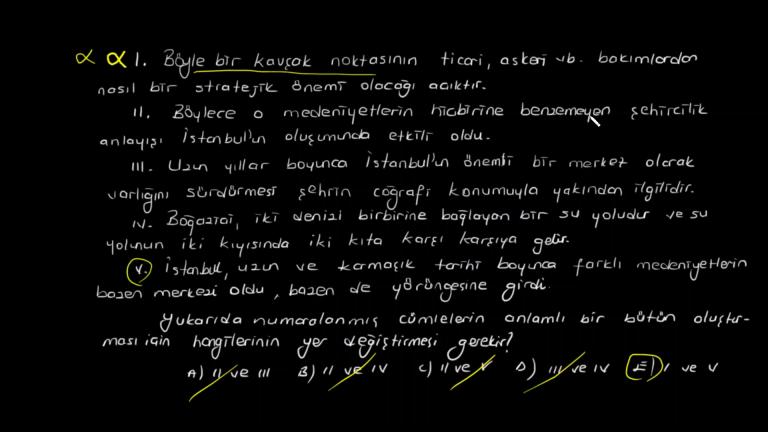 α α 1. Böyle bir kavşak noktasının ticari, askeri vb. bakımlardan
nasıl bir stratejik önemi olacağı açıktır.
II. Böylece o medeniyetlerin hiçbirine benzemeyen şehircilik
anlayışı İstanbul'un oluşumunda etkili oldu.
III. Uzun yıllar boyunca İstanbul'un önemli bir merkez olarak
varlığını sürdürmesi şehrin coğrafi konumuyla yakından ilgilidir.
IV. Boğaziçi, iki denizi birbirine bağlayan bir su yoludur ve su
yolunun iki kıyısında iki kıta karşı karşıya gelir.
V. İstanbul, uzun ve karmaşık tarihi boyunca farklı medeniyetlerin
bazen merkezi oldu, bazen de yörüngesine girdi.
Yukarıda numaralanmış cümlelerin anlamlı bir bütün oluştur-
ması için hangilerinin yer değiştirmesi gerekir?
A) II ve III B) II ve IV C) II ve V D) III ve IV E) I ve V